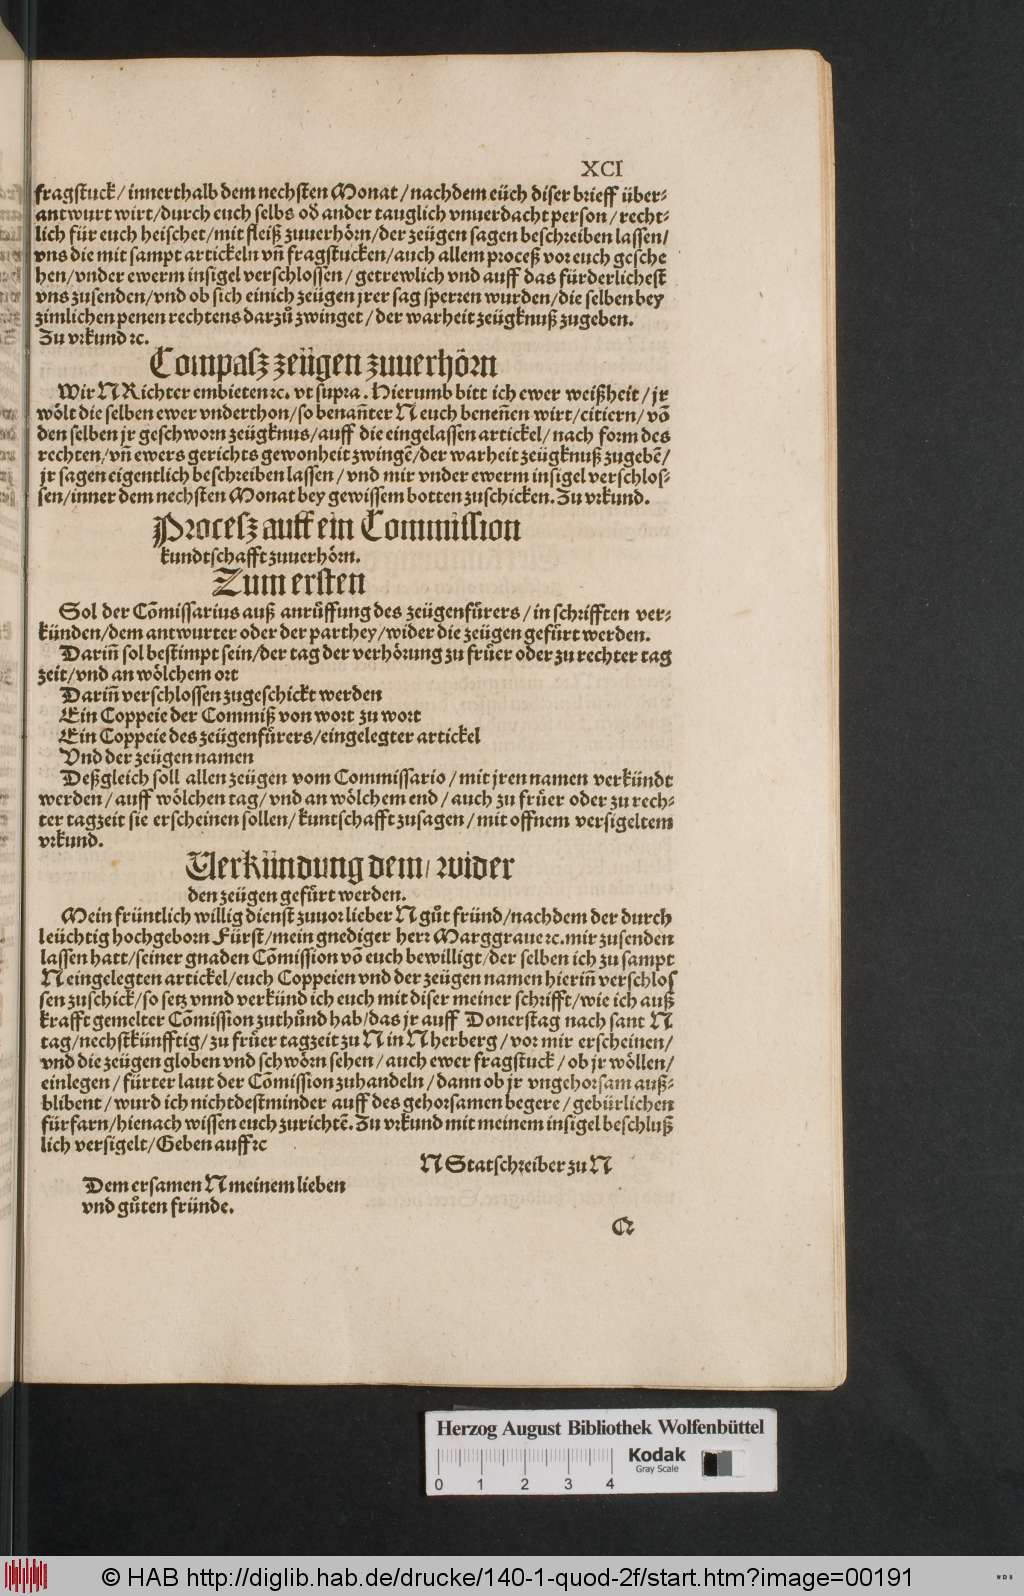 XCI
fragstuck/ innerthalb dem nechsten Monat/ nachdem eüch diser brieff über-
antwurt wirt/durch euch selbs od̃ ander tauglich vnuerdacht person/ recht-
lich für euch heischet/mit fleiß zuuerhörn/der zeügen sagen beschreiben lassen/
vns die mit sampt artickeln vñ fragstucken/auch allem proceß vor euch gesche
hen/vnder ewerm insigel verschlossen/ getrewlich vnd auff das fürderlichest
vns zusenden/vnd ob sich einich zeügen jrer sag sperren wurden/die selben bey
zimlichen penen rechtens darzuͦ zwinget/ der warheit zeügknuß zugeben.
Zu vrkund ꝛc.
Compasz zeügen zuuerhörn
Wir N Richter embieten ꝛc. vt supra. Hierumb bitt ich ewer weißheit/ jr
wölt die selben ewer vnderthon/so benañter N euch beneñen wirt/citiern/võ
den selben jr geschworn zeügknus/auff die eingelassen artickel/nach form des
rechten/vñ ewers gerichts gewonheit zwingẽ/der warheit zeügknuß zugebẽ/
jr sagen eigentlich beschreiben lassen/ vnd mir vnder ewerm insigel verschlos-
sen/inner dem nechsten Monat bey gewissem botten zuschicken. Zu vrkund.
Procesz auff ein Commission
kundtschafft zuuerhörn.
Zum ersten
Sol der Cõmissarius auß anruͤffung des zeügenfuͤrers/ in schrifften ver-
künden/dem antwurter oder der parthey/wider die zeügen gefuͤrt werden.
Dariñ sol bestimpt sein/der tag der verhörung zu fruͤer oder zu rechter tag
zeit/vnd an wölchem ort
Dariñ verschlossen zugeschickt werden
Ein Coppeie der Commiß von wort zu wort
Ein Coppeie des zeügenfuͤrers/eingelegter artickel
Vnd der zeügen namen
Deßgleich soll allen zeügen vom Commissario/ mit jren namen verkündt
werden/ auff wölchen tag/ vnd an wölchem end/ auch zu fruͤer oder zu rech-
ter tagzeit sie erscheinen sollen/ kuntschafft zusagen/ mit offnem versigeltem
vrkund.
Verkündung dem/ wider
den zeügen gefuͤrt werden.
Mein früntlich willig dienst zuuor lieber N guͦt fründ/nachdem der durch
leüchtig hochgeborn Fürst/mein gnediger herr Marggraue ꝛc. mir zusenden
lassen hatt/seiner gnaden Cõmission võ euch bewilligt/der selben ich zu sampt
N eingelegten artickel/euch Coppeien vnd der zeügen namen hieriñ verschlos
sen zuschick/so setz vnnd verkünd ich euch mit diser meiner schrifft/wie ich auß
krafft gemelter Cõmission zuthuͦnd hab/das jr auff Donerstag nach sant N.
tag/nechstkünfftig/ zu fruͤer tagzeit zu N in N herberg/ vor mir erscheinen/
vnd die zeügen globen vnd schwörn sehen/ auch ewer fragstuck/ ob jr wöllen/
einlegen/ fürter laut der Cõmission zuhandeln/ dann ob jr vngehorsam auß-
blibent/ wurd ich nichtdestminder auff des gehorsamen begere/ gebürlichen
fürfarn/hienach wissen euch zurichtẽ. Zu vrkund mit meinem insigel beschluß
lich versigelt/ Geben auff ꝛc
N Statschreiber zu N
Dem ersamen N meinem lieben
vnd guͦten fründe.
Q
Herzog August Bibliothek Wolfenbüttel
Kodak
Gray Scale
0 1 2 3 4
© HAB http://diglib.hab.de/drucke/140-1-quod-2f/start.htm?image=00191